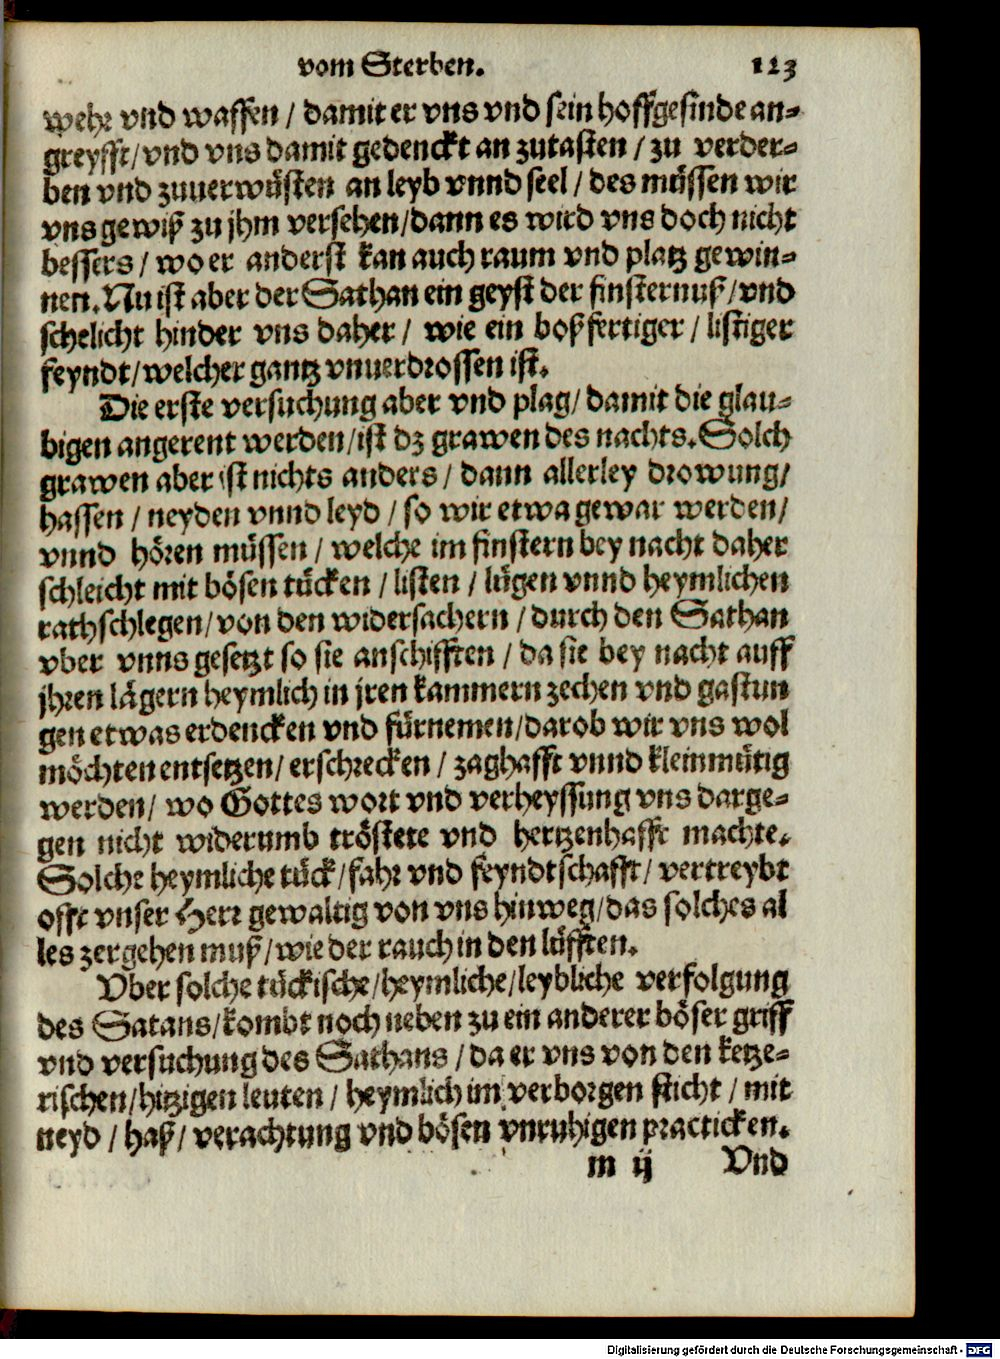 vom Sterben. 123
wehr vnd waffen / damit er vns vnd sein hoffgesinde an-
greyfft / vnd vns damit gedenckt an zutasten / zu verder-
ben vnd zuuerwüsten an leyb vnnd seel / des müssen wir
vns gewiß zu jhm versehen / dann es wird vns doch nicht
bessers / wo er anderst kan auch raum vnd platz gewin-
nen. Nu ist aber der Sathan ein geyst der finsternuß / vnd
schelicht hinder vns daher / wie ein boßfertiger / listiger
feyndt / welcher gantz vnuerdrossen ist.
Die erste versuchung aber vnd plag / damit die glau-
bigen angerent werden / ist dz grawen des nachts. Solch
grawen aber ist nichts anders / dann allerley drowung /
hassen / neyden vnnd leyd / so wir etwa gewar werden /
vnnd hören müssen / welche im finstern bey nacht daher
schleicht mit bösen tücken / listen / lügen vnnd heymlichen
rathschlegen / von den widersachern / durch den Sathan
vber vnns gesetzt so sie anschifften / da sie bey nacht auff
jhren lägern heymlich in jren kammern zechen vnd gastun
gen etwas erdencken vnd fürnemen / darob wir vns wol
möchten entsetzen / erschrecken / zaghafft vnnd kleinmütig
werden / wo Gottes wort vnd verheyssung vns darge-
gen nicht widerumb tröstete vnd hertzenhafft machte.
Solche heymliche tück / fahr vnd feyndtschafft / vertreybt
offt vnser Herr gewaltig von vns hinweg / das solches al
les zergehen muß / wie der rauch in den lüfften.
Vber solche tückische / heymliche / leybliche verfolgung
des Satans / kombt noch neben zu ein anderer böser griff
vnd versuchung des Sathans / da er vns von den ketze-
rischen / hitzigen leuten / heymlich im verborgen sticht / mit
neyd / haß / verachtung vnd bösen vnruhigen practicken.
m ij Vnd
Digitalisierung gefördert durch die Deutsche Forschungsgemeinschaft - DFG